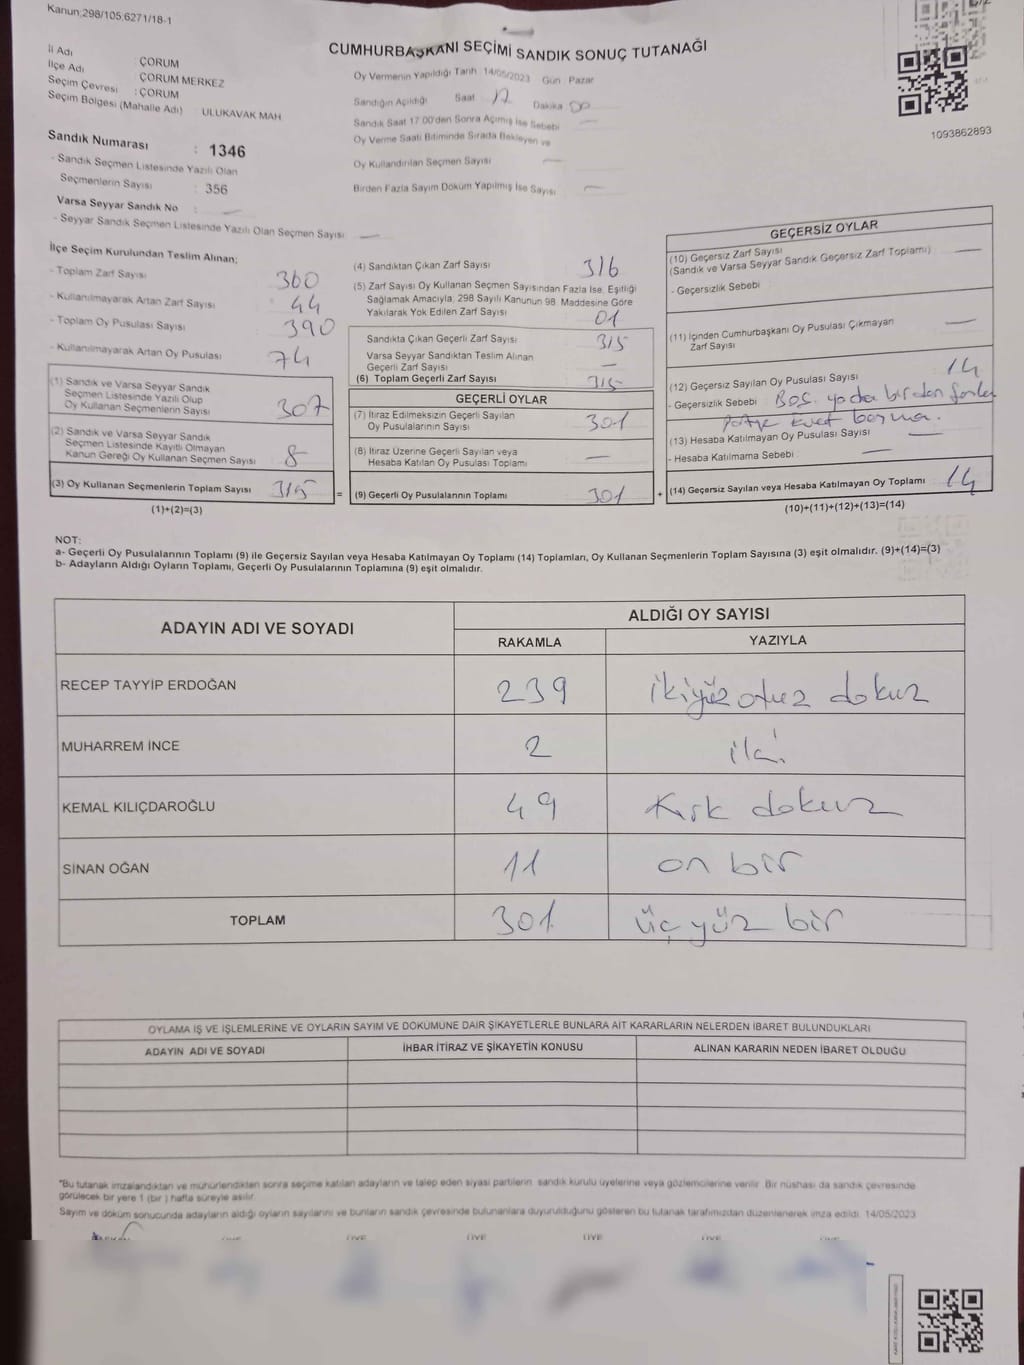 Kanun:298/105;6271/18-1
CUMHURBAŞKANI SEÇİMİ SANDIK SONUÇ TUTANAĞI
İl Adı : ÇORUM
İlçe Adı : ÇORUM MERKEZ
Seçim Çevresi : ÇORUM
Seçim Bölgesi (Mahalle Adı) : ULUKAVAK MAH
Oy Vermenin Yapıldığı Tarih 14/05/2023 Gün Pazar
Sandığın Açıldığı Saat 17 Dakika 00
Sandık Saat 17:00'den Sonra Açılmış İse Sebebi —
Oy Verme Saati Bitiminde Sırada Bekleyen ve
Oy Kullandırılan Seçmen Sayısı —
Birden Fazla Sayım Döküm Yapılmış İse Sayısı —
1093862893
Sandık Numarası : 1346
- Sandık Seçmen Listesinde Yazılı Olan
Seçmenlerin Sayısı : 356
Varsa Seyyar Sandık No : —
- Seyyar Sandık Seçmen Listesinde Yazılı Olan Seçmen Sayısı —
İlçe Seçim Kurulundan Teslim Alınan;
- Toplam Zarf Sayısı 360
- Kullanılmayarak Artan Zarf Sayısı 44
- Toplam Oy Pusulası Sayısı 390
- Kullanılmayarak Artan Oy Pusulası 74
(1) Sandık ve Varsa Seyyar Sandık
Seçmen Listesinde Yazılı Olup
Oy Kullanan Seçmenlerin Sayısı 307
(2) Sandık ve Varsa Seyyar Sandık
Seçmen Listesinde Kayıtlı Olmayan
Kanun Gereği Oy Kullanan Seçmen Sayısı 8
(3) Oy Kullanan Seçmenlerin Toplam Sayısı 315
(1)+(2)=(3)
(4) Sandıktan Çıkan Zarf Sayısı 316
(5) Zarf Sayısı Oy Kullanan Seçmen Sayısından Fazla İse, Eşitliği
Sağlamak Amacıyla, 298 Sayılı Kanunun 98. Maddesine Göre
Yakılarak Yok Edilen Zarf Sayısı 01
Sandıkta Çıkan Geçerli Zarf Sayısı 315
Varsa Seyyar Sandıktan Teslim Alınan
Geçerli Zarf Sayısı —
(6) Toplam Geçerli Zarf Sayısı 315
GEÇERLİ OYLAR
(7) İtiraz Edilmeksizin Geçerli Sayılan
Oy Pusulalarının Sayısı 301
(8) İtiraz Üzerine Geçerli Sayılan veya
Hesaba Katılan Oy Pusulası Toplamı —
= (9) Geçerli Oy Pusulalarının Toplamı 301
GEÇERSİZ OYLAR
(10) Geçersiz Zarf Sayısı
(Sandık ve Varsa Seyyar Sandık Geçersiz Zarf Toplamı) —
- Geçersizlik Sebebi
(11) İçinden Cumhurbaşkanı Oy Pusulası Çıkmayan
Zarf Sayısı —
(12) Geçersiz Sayılan Oy Pusulası Sayısı 14
- Geçersizlik Sebebi Boş ya da birden fazla
Evet basma.
(13) Hesaba Katılmayan Oy Pusulası Sayısı —
- Hesaba Katılmama Sebebi —
+ (14) Geçersiz Sayılan veya Hesaba Katılmayan Oy Toplamı 14
(10)+(11)+(12)+(13)=(14)
NOT:
a- Geçerli Oy Pusulalarının Toplamı (9) ile Geçersiz Sayılan veya Hesaba Katılmayan Oy Toplamı (14) Toplamları, Oy Kullanan Seçmenlerin Toplam Sayısına (3) eşit olmalıdır. (9)+(14)=(3)
b- Adayların Aldığı Oyların Toplamı, Geçerli Oy Pusulalarının Toplamına (9) eşit olmalıdır.
ADAYIN ADI VE SOYADI ALDIĞI OY SAYISI
RAKAMLA YAZIYLA
RECEP TAYYİP ERDOĞAN 239 ikiyüz otuz dokuz
MUHARREM İNCE 2 iki
KEMAL KILIÇDAROĞLU 49 Kırk dokuz
SİNAN OĞAN 11 on bir
TOPLAM 301 üç yüz bir
OYLAMA İŞ VE İŞLEMLERİNE VE OYLARIN SAYIM VE DÖKÜMÜNE DAİR ŞİKAYETLERLE BUNLARA AİT KARARLARIN NELERDEN İBARET BULUNDUKLARI
ADAYIN ADI VE SOYADI İHBAR İTİRAZ VE ŞİKAYETİN KONUSU ALINAN KARARIN NEDEN İBARET OLDUĞU
*Bu tutanak imzalandıktan ve mühürlendikten sonra seçime katılan adayların ve talep eden siyasi partilerin, sandık kurulu üyelerine veya gözlemcilerine verilir. Bir nüshası da sandık çevresinde
görülecek bir yere 1 (bir) hafta süreyle asılır.
Sayım ve döküm sonucunda adayların aldığı oyların sayılarını ve bunların sandık çevresinde bulunanlara duyurulduğunu gösteren bu tutanak tarafımızdan düzenlenerek imza edildi. 14/05/2023
BAŞKAN ÜYE ÜYE ÜYE ÜYE ÜYE